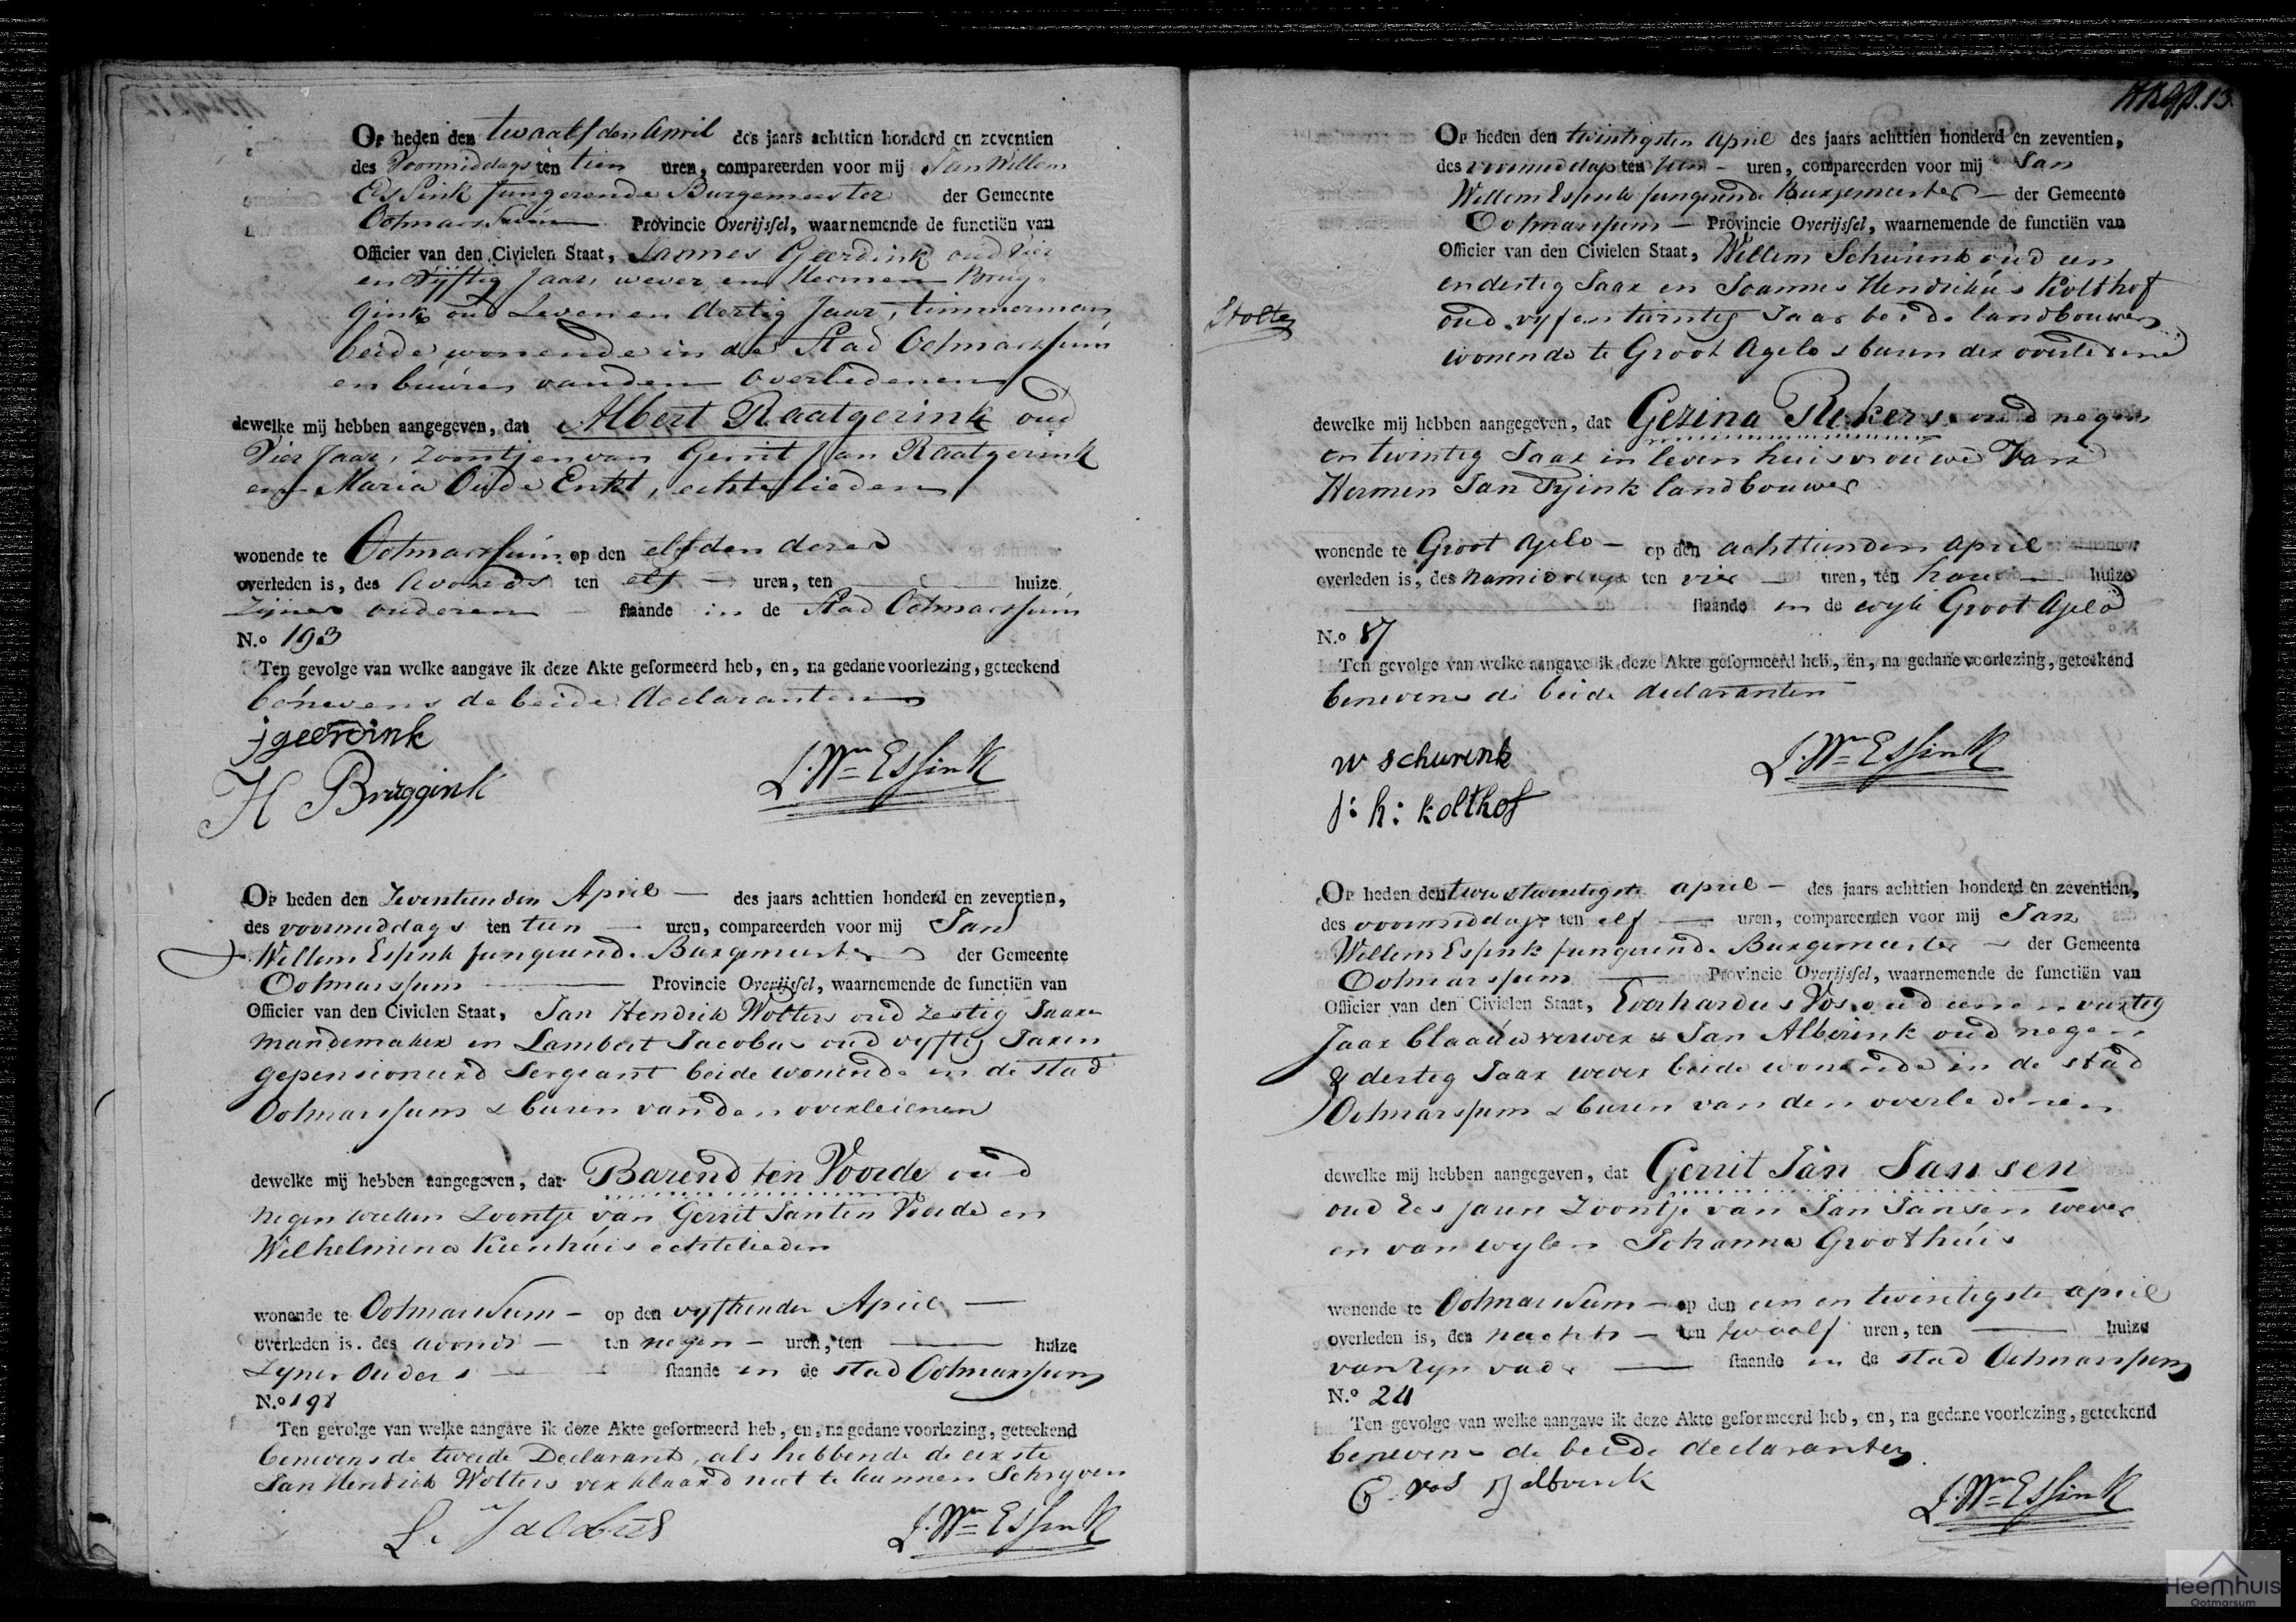 Op heden den twaalfden April des jaars achttien honderd en zeventien
des Voormiddags ten tien uren, compareerden voor mij Jan Willem
Essink fungerende Burgemeester der Gemeente
Ootmarssum Provincie Overijssel, waarnemende de functiën van
Officier van den Civielen Staat, Jannes Geerdink oud Vier
en Vijftig Jaar, wever en Hermen Brug-
gink oud Zeven en dertig Jaar, timmerman
beide wonende in de Stad Ootmarssum
en buuren van den Overledenen
dewelke mij hebben aangegeven, dat Albert Raatgerink oud
Vier Jaar, Zoontjen van Gerrit Jan Raatgerink
en Maria Oude Enkt, echtelieden
wonende te Ootmarssum op den elfden dezer
overleden is, des Avonds ten elf uren, ten huize
zijner ouderen staande in de Stad Ootmarssum
N.o 193
Ten gevolge van welke aangave ik deze Akte geformeerd heb, en, na gedane voorlezing, geteekend
benevens de beide declaranten
j geerdink
H Bruggink
J. Wm Essink
Op heden den Zeventienden April des jaars achttien honderd en zeventien,
des voormiddags ten tien uren, compareerden voor mij Jan
Willem Essink fungerende Burgemeester der Gemeente
Ootmarssum Provincie Overijssel, waarnemende de functiën van
Officier van den Civielen Staat, Jan Hendrik Wolters oud Zestig Jaaren
mandemaker en Lambert Jacobus oud vyftig Jaren
gepensioneerd Sergeant beide wonende in de stad
Ootmarssum & buren van den overledenen
dewelke mij hebben aangegeven, dat Barend ten Voorde oud
negen weeken Zoontje van Gerrit Jan ten Voorde en
Wilhelmina Kienhuis echtelieden
wonende te Ootmarssum op den vyftienden April
overleden is, des avonds ten negen uren, ten huize
Zyner Ouders staande in de stad Ootmarssum
N.o 198
Ten gevolge van welke aangave ik deze Akte geformeerd heb, en, na gedane voorlezing, geteekend
benevens de tweede Declarant, als hebbende de eerste
Jan Hendrik Wolters verklaard niet te kunnen Schryven
L. Jacobus
J. Wm Essink
13
Op heden den twintigsten April des jaars achttien honderd en zeventien,
des voormiddags ten tien uren, compareerden voor mij Jan
Willem Essink fungerende Burgemeester der Gemeente
Ootmarssum Provincie Overijssel, waarnemende de functiën van
Officier van den Civielen Staat, Willem Schurink oud een
en dertig Jaar en Joannes Hendrikus Kolthof
oud vyf en twintig Jaar beide landbouwers
wonende te Groot Agelo & buren der overledene
Stolte
dewelke mij hebben aangegeven, dat Gezina Rekers oud negen
en twintig Jaar in leven huisvrouwe Van
Hermen Jan Tyink landbouwer
wonende te Groot Agelo op den achttienden April
overleden is, des namiddags ten vier uren, ten haren huize
staande in de wyk Groot Agelo
N.o 87
Ten gevolge van welke aangave ik deze Akte geformeerd heb, en, na gedane voorlezing, geteekend
benevens de beide declaranten
w schurink
j: h: kolthof
J. Wm Essink
Op heden den twee & twintigste april des jaars achttien honderd en zeventien,
des voormiddags ten elf uren, compareerden voor mij Jan
Willem Essink fungerende Burgemeester der Gemeente
Ootmarssum Provincie Overijssel, waarnemende de functiën van
Officier van den Civielen Staat, Everhardus Vos oud een en veertig
Jaar blaauwverwer & Jan Alberink oud negen
& dertig Jaar wever beide wonende in de stad
Ootmarssum & buren van den overledenen
dewelke mij hebben aangegeven, dat Gerrit Jan Jansen
oud Zes jaren Zoontje van Jan Jansen wever
en van wylen Johanna Groothuis
wonende te Ootmarssum op den een en twintigste april
overleden is, des nachts ten twaalf uren, ten huize
van zyn vader staande in de stad Ootmarssum
N.o 24
Ten gevolge van welke aangave ik deze Akte geformeerd heb, en, na gedane voorlezing, geteekend
benevens de beide declaranten
E. vos
J. Wm Essink
Heemhuis
Ootmarsum